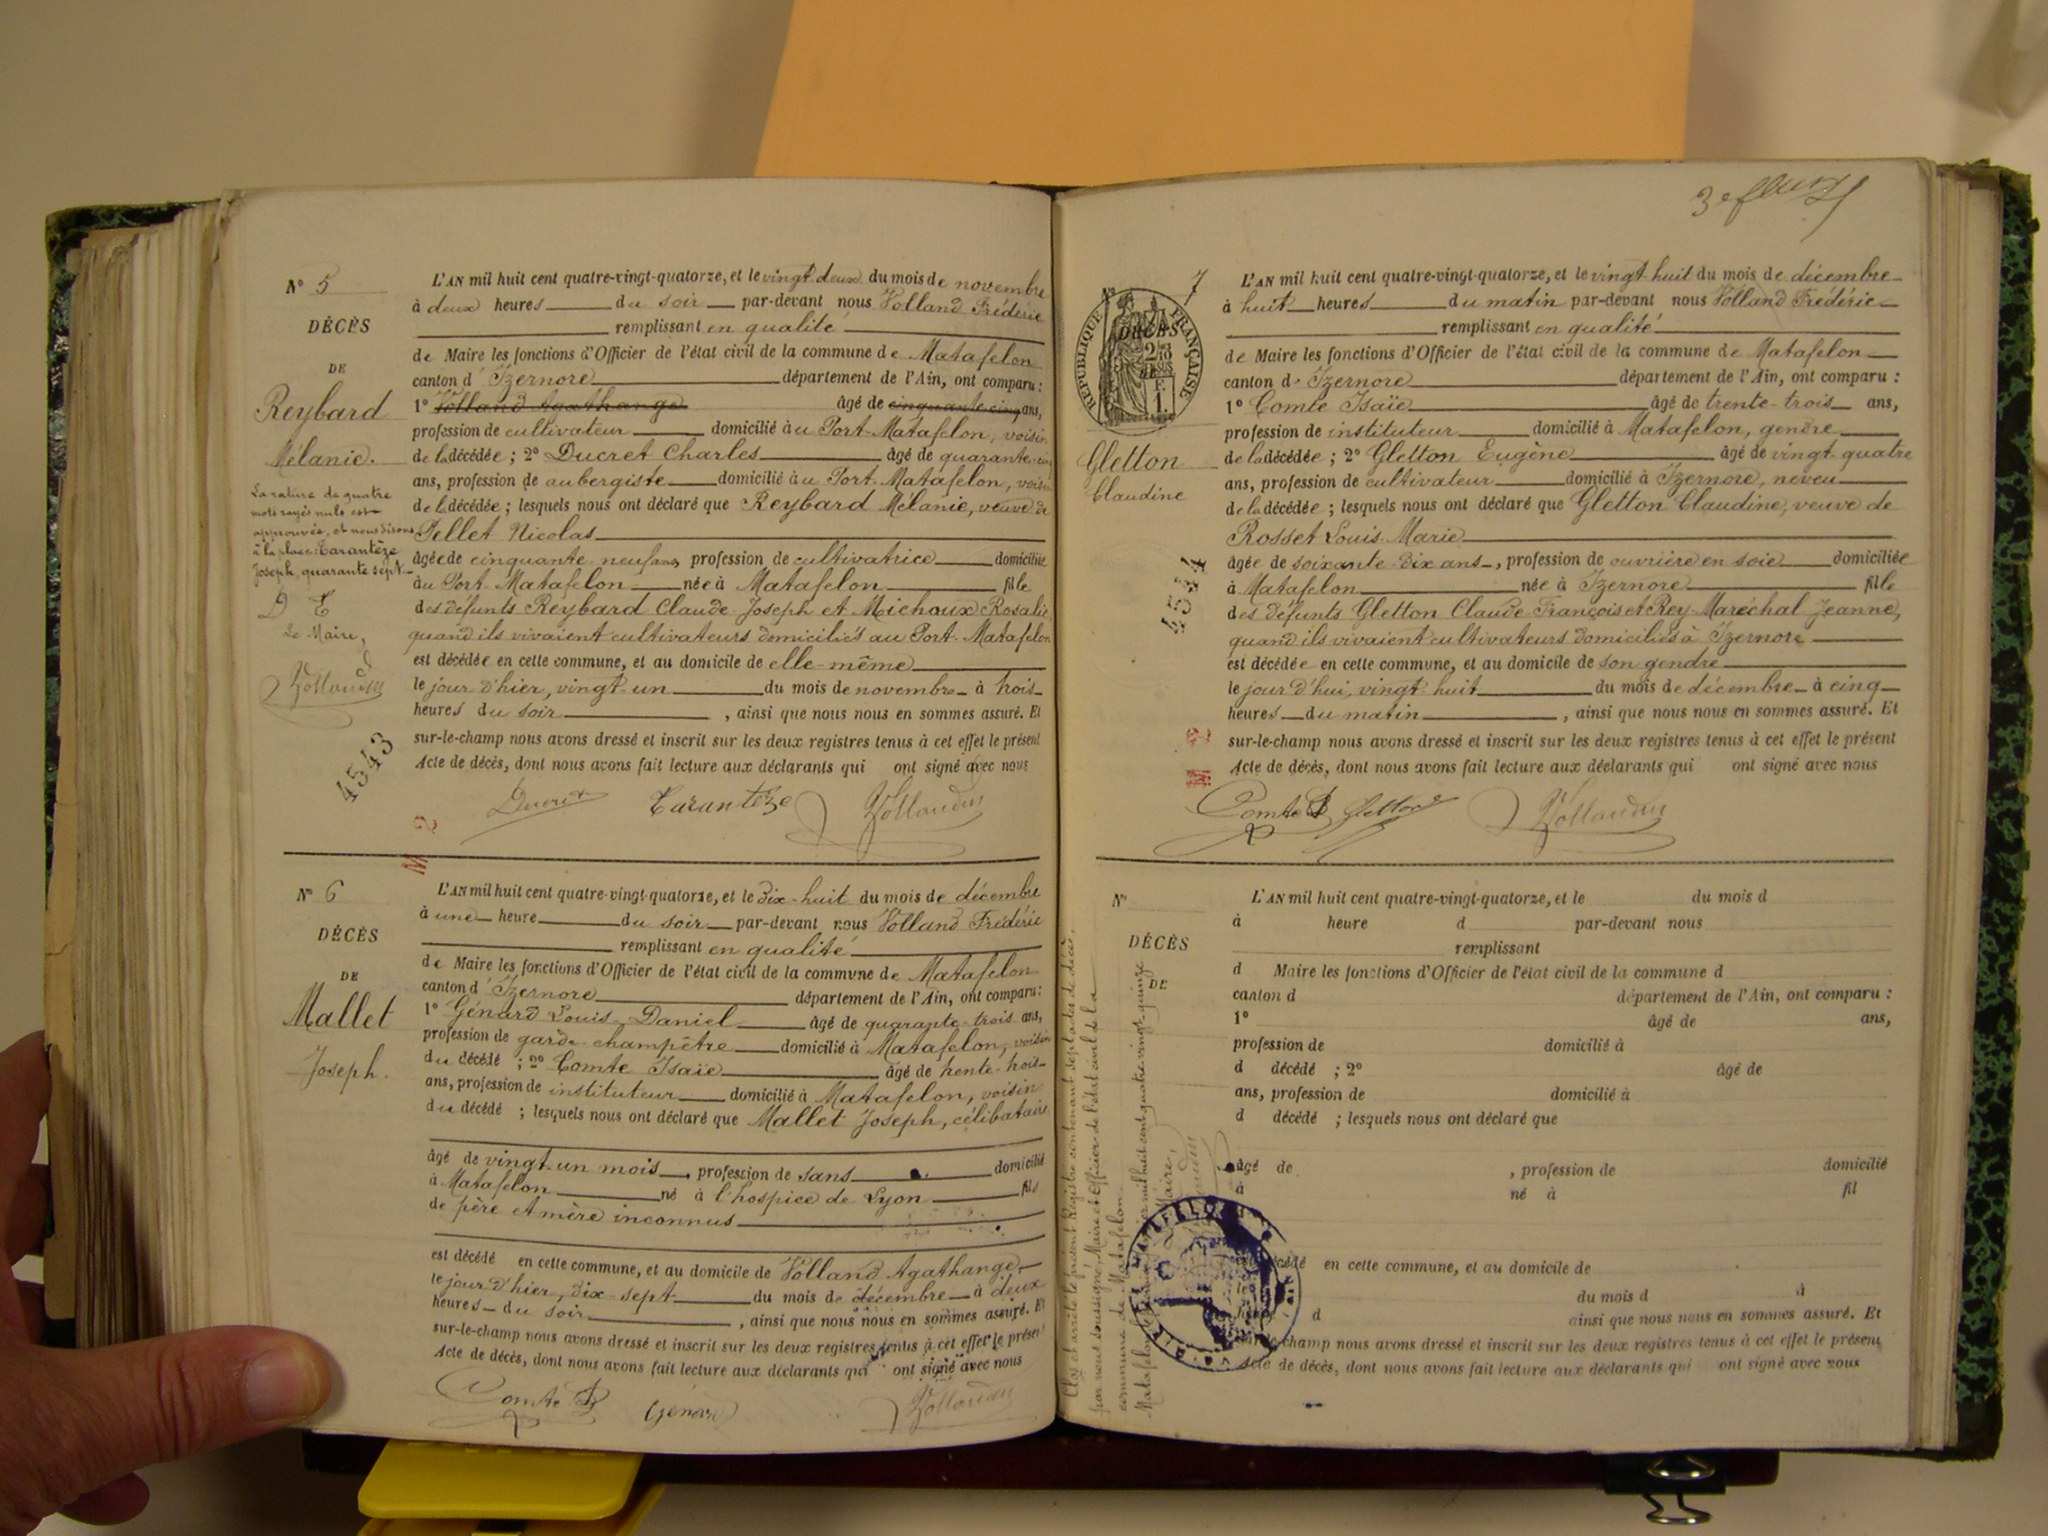 N° 5
DÉCÈS
DE
Reybard
Mélanie.
La rature de quatre
mots rayés nuls est
approuvée, et nous disons
à la place: Tarantèze
Joseph, quarante sept.
D T
Le Maire,
Vollandn
4543
L'AN mil huit cent quatre-vingt-quatorze, et le vingt deux du mois de novembre
à deux heures du soir par-devant nous Volland Frédéric
remplissant en qualité
de Maire les fonctions d'Officier de l'état civil de la commune de Matafelon
canton d'Izernore département de l'Ain, ont comparu :
1° Volland Agathange âgé de cinquante cinq ans,
profession de cultivateur domicilié au Port-Matafelon, voisin
de la décédée ; 2° Ducret Charles âgé de quarante-cinq
ans, profession de aubergiste domicilié au Port-Matafelon, voisin
de la décédée ; lesquels nous ont déclaré que Reybard Mélanie, veuve de
Pellet Nicolas
âgée de cinquante neuf ans, profession de cultivatrice domiciliée
au Port-Matafelon née à Matafelon fille
des défunts Reybard Claude-Joseph et Michoux Rosalie,
quand ils vivaient cultivateurs domiciliés au Port-Matafelon
est décédée en cette commune, et au domicile de elle-même
le jour d'hier, vingt-un du mois de novembre à trois
heures du soir , ainsi que nous nous en sommes assuré. Et
sur-le-champ nous avons dressé et inscrit sur les deux registres tenus à cet effet le présent
Acte de décès, dont nous avons fait lecture aux déclarants qui ont signé avec nous
Ducret Tarantèze Vollandn
N° 6
DÉCÈS
DE
Mallet
Joseph.
L'AN mil huit cent quatre-vingt-quatorze, et le dix-huit du mois de décembre
à une heure du soir par-devant nous Volland Frédéric
remplissant en qualité
de Maire les fonctions d'Officier de l'état civil de la commune de Matafelon
canton d'Izernore département de l'Ain, ont comparu :
1° Génard Louis-Daniel âgé de quarante-trois ans,
profession de garde-champêtre domicilié à Matafelon, voisin
du décédé ; 2° Comte Isaïe âgé de trente-trois
ans, profession de instituteur domicilié à Matafelon, voisin
du décédé ; lesquels nous ont déclaré que Mallet Joseph, célibataire
âgé de vingt-un mois , profession de sans domicilié
à Matafelon né à l'hospice de Lyon fils
de père et mère inconnus
est décédé en cette commune, et au domicile de Volland Agathange
le jour d'hier, dix-sept du mois de décembre à deux
heures du soir , ainsi que nous nous en sommes assuré. Et
sur-le-champ nous avons dressé et inscrit sur les deux registres tenus à cet effet le présent
Acte de décès, dont nous avons fait lecture aux déclarants qui ont signé avec nous
Comte I Génard Vollandn
N° 7
RÉPUBLIQUE FRANÇAISE
DÉCÈS
DE
Gletton
Claudine
4544
L'AN mil huit cent quatre-vingt-quatorze, et le vingt huit du mois de décembre
à huit heures du matin par-devant nous Volland Frédéric
remplissant en qualité
de Maire les fonctions d'Officier de l'état civil de la commune de Matafelon
canton d'Izernore département de l'Ain, ont comparu :
1° Comte Isaïe âgé de trente-trois ans,
profession de instituteur domicilié à Matafelon, gendre
de la décédée ; 2° Gletton Eugène âgé de vingt-quatre
ans, profession de cultivateur domicilié à Izernore, neveu
de la décédée ; lesquels nous ont déclaré que Gletton Claudine, veuve de
Rosset Louis-Marie
âgée de soixante-dix ans , profession de ouvrière en soie domiciliée
à Matafelon née à Izernore fille
des défunts Gletton Claude-François et Rey-Maréchal Jeanne,
quand ils vivaient cultivateurs domiciliés à Izernore
est décédée en cette commune, et au domicile de son gendre
le jour d'hui, vingt-huit du mois de décembre à cinq
heures du matin , ainsi que nous nous en sommes assuré. Et
sur-le-champ nous avons dressé et inscrit sur les deux registres tenus à cet effet le présent
Acte de décès, dont nous avons fait lecture aux déclarants qui ont signé avec nous
Comte I Gletton Vollandn
N°
DÉCÈS
DE
L'AN mil huit cent quatre-vingt-quatorze, et le du mois d
à heure d par-devant nous
remplissant
d Maire les fonctions d'Officier de l'état civil de la commune d
canton d département de l'Ain, ont comparu :
1° âgé de ans,
profession de domicilié à
d décédé ; 2° âgé de
ans, profession de domicilié à
d décédé ; lesquels nous ont déclaré que
âgé de , profession de domicilié
à né à fil
décédé en cette commune, et au domicile de
du mois d à
d ainsi que nous nous en sommes assuré. Et
sur-le-champ nous avons dressé et inscrit sur les deux registres tenus à cet effet le présent
Acte de décès, dont nous avons fait lecture aux déclarants qui ont signé avec nous
Clos et arrêté le présent Registre contenant sept actes de décès,
par nous soussigné, Maire et Officier de l'état civil de la
commune de Matafelon
Matafelon mil huit cent quatre-vingt-quinze
Maire,